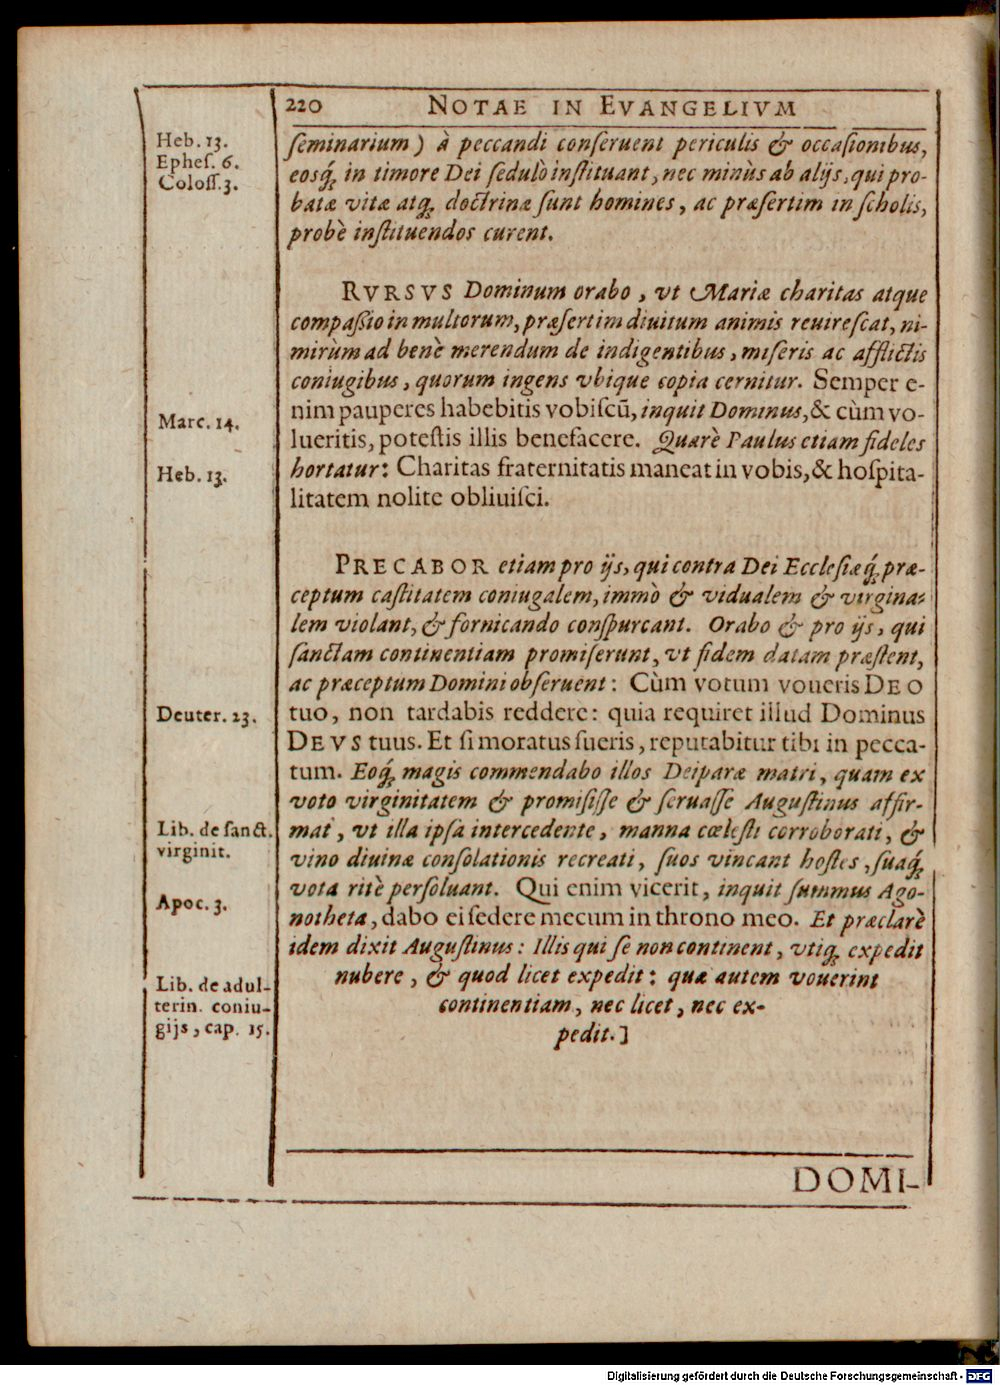 220 NOTAE IN EVANGELIVM
Heb. 13.
Ephes. 6.
Coloss. 3.
seminarium) à peccandi conseruent periculis & occasionibus,
eosq́; in timore Dei sedulò instituant, nec minùs ab alijs, qui pro-
batæ vitæ atq; doctrinæ sunt homines, ac præsertim in scholis,
probè instituendos curent.
RVRSVS Dominum orabo, vt Mariæ charitas atque
compassio in multorum, præsertim diuitum animis reuirescat, ni-
mirùm ad benè merendum de indigentibus, miseris ac afflictis
coniugibus, quorum ingens vbique copia cernitur. Semper e-
nim pauperes habebitis vobiscũ, inquit Dominus, & cùm vo-
lueritis, potestis illis benefacere. Quarè Paulus etiam fideles
hortatur: Charitas fraternitatis maneat in vobis, & hospita-
litatem nolite obliuisci.
Marc. 14.
Heb. 13.
PRECABOR etiam pro ijs, qui contra Dei Ecclesiæq́; præ-
ceptum castitatem coniugalem, immò & vidualem & virgina-
lem violant, & fornicando conspurcant. Orabo & pro ijs, qui
sanctam continentiam promiserunt, vt fidem datam præstent,
ac præceptum Domini obseruent: Cùm votum voueris DEO
tuo, non tardabis reddere: quia requiret illud Dominus
DEVS tuus. Et si moratus fueris, reputabitur tibi in pecca-
tum. Eoq́; magis commendabo illos Deiparæ matri, quam ex
voto virginitatem & promisisse & seruasse Augustinus affir-
mat, vt illa ipsa intercedente, manna cœlesti corroborati, &
vino diuinæ consolationis recreati, suos vincant hostes, suaq́;
vota ritè persoluant. Qui enim vicerit, inquit summus Ago-
notheta, dabo ei sedere mecum in throno meo. Et præclarè
idem dixit Augustinus: Illis qui se non continent, vtiq; expedit
nubere, & quod licet expedit: quæ autem vouerint
continentiam, nec licet, nec ex-
pedit.]
Deuter. 23.
Lib. de sanct.
virginit.
Apoc. 3.
Lib. de adul-
terin. coniu-
gijs, cap. 15.
DOMI-
Digitalisierung gefördert durch die Deutsche Forschungsgemeinschaft - DFG